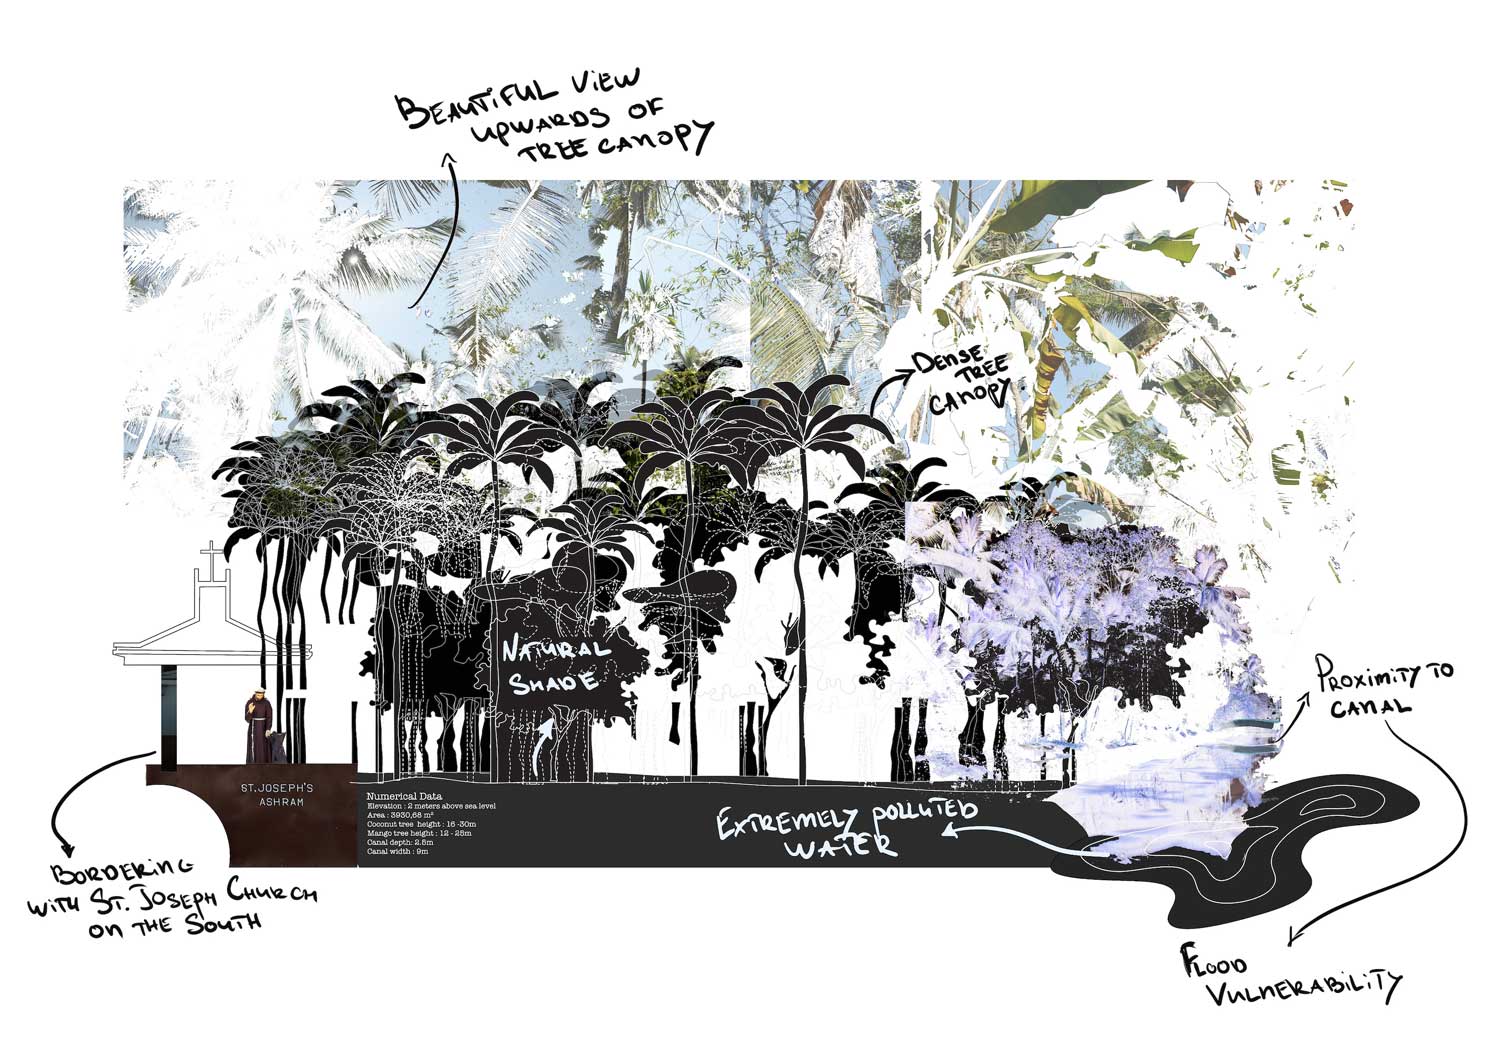 BEAUTIFUL VIEW
UPWARDS OF
TREE CANOPY
DENSE
TREE
CANOPY
NATURAL
SHADE
PROXIMITY TO
CANAL
ST.JOSEPH'S
ASHRAM
Numerical Data
Elevation : 2 meters above sea level
Area : 3930,68 m²
Coconut tree height : 16 -30m
Mango tree height : 12 - 25m
Canal depth: 2.5m
Canal width : 9m
EXTREMELY POLLUTED
WATER
BORDERING
WITH ST. JOSEPH CHURCH
ON THE SOUTH
FLOOD
VULNERABILITY